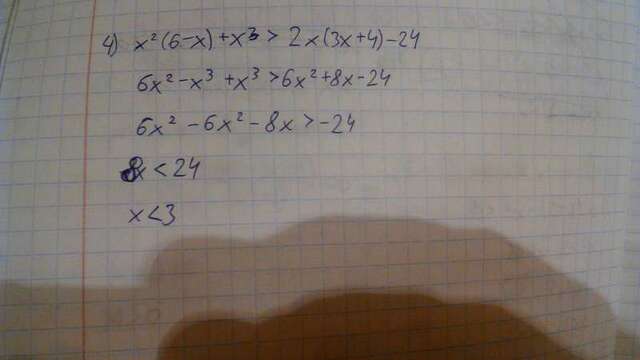 4) x²(6-x)+x³ > 2x(3x+4)-24
6x²-x³+x³>6x²+8x-24
6x²-6x²-8x>-24
8x<24
x<3